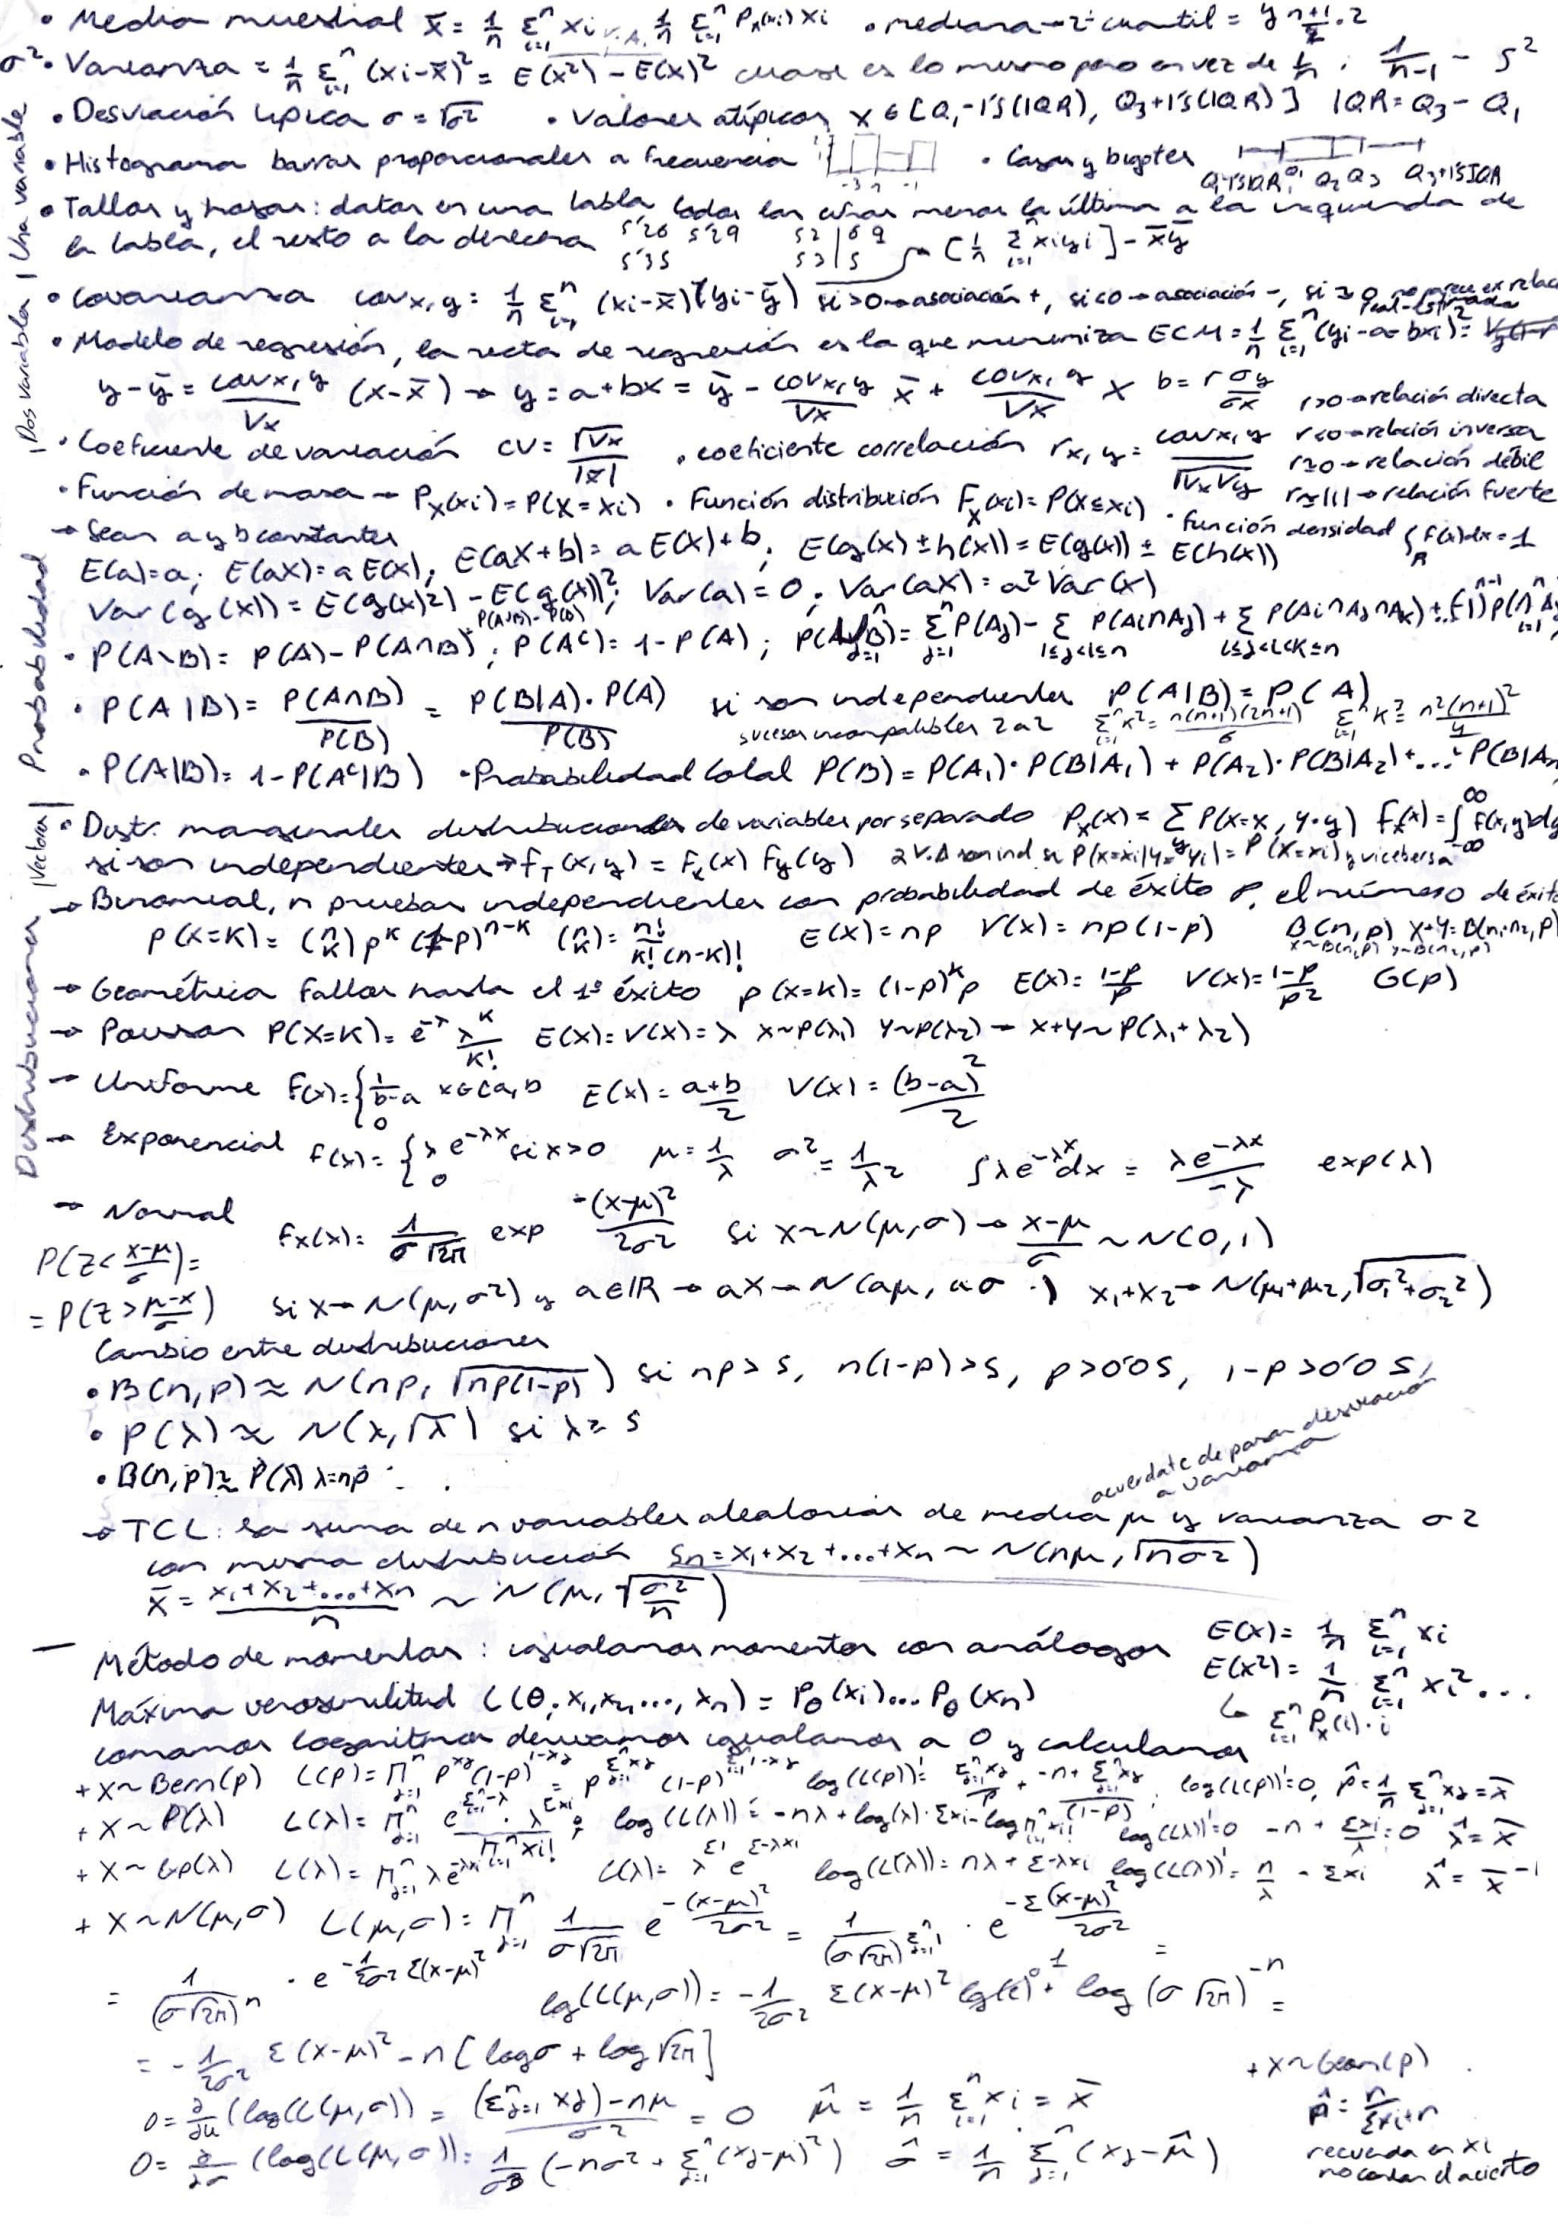 • Media muestral x̄ = 1/n Σ(i=1..n) xi V.A. 1/n Σ(i=1..n) Px(xi) xi • mediana → 2º cuantil = y (n+1)/2 . 2
σ² • Varianza = 1/n Σ(i=1..n) (xi-x̄)² = E(x²) - E(x)² cuasi es lo mismo pero en vez de 1/n , 1/(n-1) - S²
• Desviación típica σ = √σ² • Valores atípicos x ∈ [Q₁-1'5(IQR), Q₃+1'5(IQR)] IQR = Q₃ - Q₁
• Histograma barras proporcionales a frecuencia • Cajas y bigotes
Q₁-1'5IQR Q₁ Q₂ Q₃ Q₃+1'5IQR
Una variable
• Tallos y hojas: datos en una tabla, todas las cifras menos la última a la izquierda de
la tabla, el resto a la derecha 5'26 5'29 52|6 9 → [1/n Σ(i=1..n) xiyi] - x̄ȳ
5'35 53|5
• Covarianza covx,y = 1/n Σ(i=1..n) (xi-x̄)(yi-ȳ) si >0 → asociación +, si <0 → asociación -, si ≈ 0 no parece ex relac
Dos variables
• Modelo de regresión, la recta de regresión es la que minimiza ECM = 1/n Σ(i=1..n) (yi-a-bxi)² =
y-ȳ = covx,y/Vx (x-x̄) → y = a+bx = ȳ - covx,y/Vx x̄ + covx,y/Vx x b = r σy/σx r>0 → relación directa
r<0 → relación inversa
• Coeficiente de variación CV = √Vx/|x̄| • coeficiente correlación rx,y = covx,y/√VxVy r≈0 → relación débil
r≈|1| → relación fuerte
Probabilidad
• Función de masa → Px(xi) = P(X=xi) • Función distribución Fx(xi) = P(X≤xi) • Función densidad ∫R f(x)dx = 1
→ Sean a y b constantes
E(a)=a; E(aX)=aE(X); E(aX+b)=aE(X)+b; E(g(x)±h(x)) = E(g(x)) ± E(h(x))
Var(g(x)) = E(g(x)²) - E(g(x))²; Var(a) = 0; Var(aX) = a²Var(X)
P(A∪B)-P(B)
• P(A\B) = P(A)-P(A∩B); P(Aᶜ) = 1-P(A); = Σ(j=1..n) P(Aj) - Σ(1≤j<l≤n) P(Ai∩Aj) + Σ(1≤j<l<k≤n) P(Ai∩Aj∩Ak) + ...(-1)ⁿ⁻¹ P(∩(i=1..n) A
• P(A|B) = P(A∩B)/P(B) = P(B|A)·P(A)/P(B) si son independientes P(A|B) = P(A)
sucesos incompatibles 2 a 2 Σ(i=1..n) k² = n(n+1)(2n+1)/6 Σ(i=1..n) k³ = n²(n+1)²/4
• P(A|B) = 1-P(Aᶜ|B) • Probabilidad total P(B) = P(A₁)·P(B|A₁) + P(A₂)·P(B|A₂) + ... P(B|An
Vectores
• Distr. marginales distribuciones de variables por separado Px(x) = Σ P(X=x, Y=y) fx(x) = ∫(-∞..∞) f(x,y)dy
si son independientes → fT(x,y) = Fx(x) Fy(y) 2 V.A son ind si P(X=xi|Y=yi) = P(X=xi) y viceversa
Distribuciones
→ Binomial, n pruebas independientes con probabilidad de éxito p, el número de éxito
P(X=K) = (n K) pᴷ (1-p)ⁿ⁻ᴷ (n K) = n!/K!(n-K)! E(X) = np V(X) = np(1-p) B(n,p) X+Y = B(n₁+n₂,p)
X~B(n₁,p) Y~B(n₂,p)
→ Geométrica Fallos hasta el 1º éxito P(X=K) = (1-p)ᴷp E(X) = (1-p)/p V(X) = (1-p)/p² G(p)
→ Poisson P(X=K) = e⁻λ λᴷ/K! E(X) = V(X) = λ X~P(λ₁) Y~P(λ₂) → X+Y~P(λ₁+λ₂)
→ Uniforme F(x) = { 1/(b-a) x∈(a,b 0 E(X) = (a+b)/2 V(X) = (b-a)²/2
→ Exponencial f(x) = { λe^(-λx) si x>0 0 μ = 1/λ σ² = 1/λ² ∫λe^(-λx)dx = λe^(-λx)/-λ exp(λ)
→ Normal fx(x) = 1/(σ√2π) exp -(x-μ)²/2σ² Si X~N(μ,σ) → (X-μ)/σ ~ N(0,1)
P(Z<(x-μ)/σ) =
= P(Z>(μ-x)/σ) Si X → N(μ,σ²) y a∈ℝ → aX → N(aμ, aσ ) X₁+X₂ → N(μ₁+μ₂, √(σ₁²+σ₂²))
Cambio entre distribuciones
• B(n,p) ≈ N(np, √np(1-p)) si np>5, n(1-p)>5, p>0'05, 1-p>0'05
• P(λ) ≈ N(λ,√λ) si λ≥5
• B(n,p) ≈ P(λ) λ=np
acuerdate de pasar desviación
a varianza
→ TCL: La suma de n variables aleatorias de media μ y varianza σ²
con misma distribución Sn = X₁+X₂+...+Xn ~ N(nμ,√nσ²)
x̄ = (X₁+X₂+...+Xn)/n ~ N(μ,√(σ²/n))
— Método de momentos: igualamos momentos con análogos E(X) = 1/n Σ(i=1..n) xi
E(X²) = 1/n Σ(i=1..n) xi² ...
Máxima verosimilitud L(θ,x₁,x₂,...,xn) = Pθ(xi)...Pθ(xn) ↳ Σ(i=1..n) Px(i)·i
tomamos logaritmos derivamos igualamos a 0 y calculamos
+ X~Bern(p) L(p) = Π(j=1..n) p^xj (1-p)^(1-xj) = p^(Σxj) (1-p)^(Σ1-xj) log(L(p))' = Σxj/p + (-n+Σxj)/(1-p); log(L(p))'=0, p̂ = 1/n Σ(j=1..n) xj = x̄
+ X~P(λ) L(λ) = Π(j=1..n) e^(Σ-λ)·λ^(Σxi)/Πxi!; log(L(λ)) = -nλ+log(λ)·Σxi-log Πxi! log(L(λ))'=0 -n + Σxi/λ = 0 λ̂ = x̄
+ X~Exp(λ) L(λ) = Π(j=1..n) λe^(-λxi) L(λ) = λ^(Σ1) e^(Σ-λxi) log(L(λ)) = nλ + Σ-λxi log(L(λ))' = n/λ - Σxi λ̂ = x̄⁻¹
+ X~N(μ,σ) L(μ,σ) = Π(j=1..n) 1/(σ√2π) e^(-(x-μ)²/2σ²) = 1/(σ√2π)^(Σ1) · e^(-Σ(x-μ)²/2σ²) =
= 1/(σ√2π)ⁿ · e^(-1/2σ² Σ(x-μ)²) log(L(μ,σ)) = -1/2σ² Σ(x-μ)² log(e)¹ + log(σ√2π)⁻ⁿ =
= -1/2σ² Σ(x-μ)² - n[logσ + log√2π]
0 = ∂/∂μ (log(L(μ,σ)) = ((Σ(j=1..n) xj)-nμ)/σ² = 0 μ̂ = 1/n Σ(i=1..n) xi = x̄
0 = ∂/∂σ (log(L(μ,σ)) = 1/σ³ (-nσ² + Σ(j=1..n)(xj-μ)²) σ̂ = 1/n Σ(j=1..n) (xj-μ̂)
+ X~Geom(p)
p̂ = n/(Σxi+n)
recuerda en xi
no contar el acierto